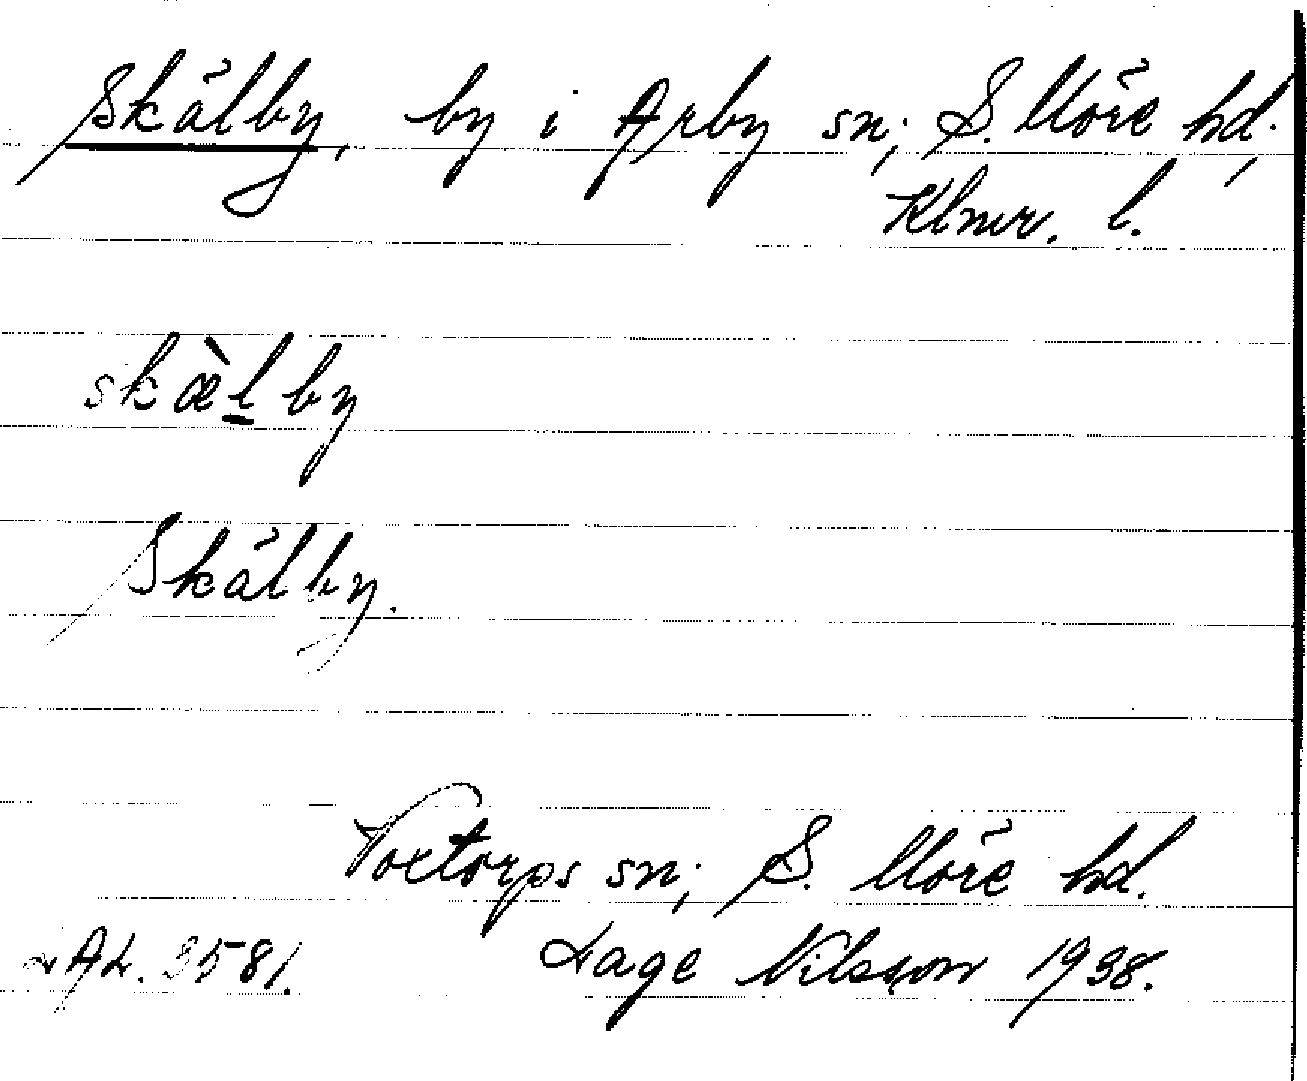 Skälby, by i Arby sn; S. Möre hd.,
Klmr. l.
skæ̀l̲by
Skälby.
Voxtorps sn; S. Möre hd.
LAL. 3581. Lage Nilsson 1938.